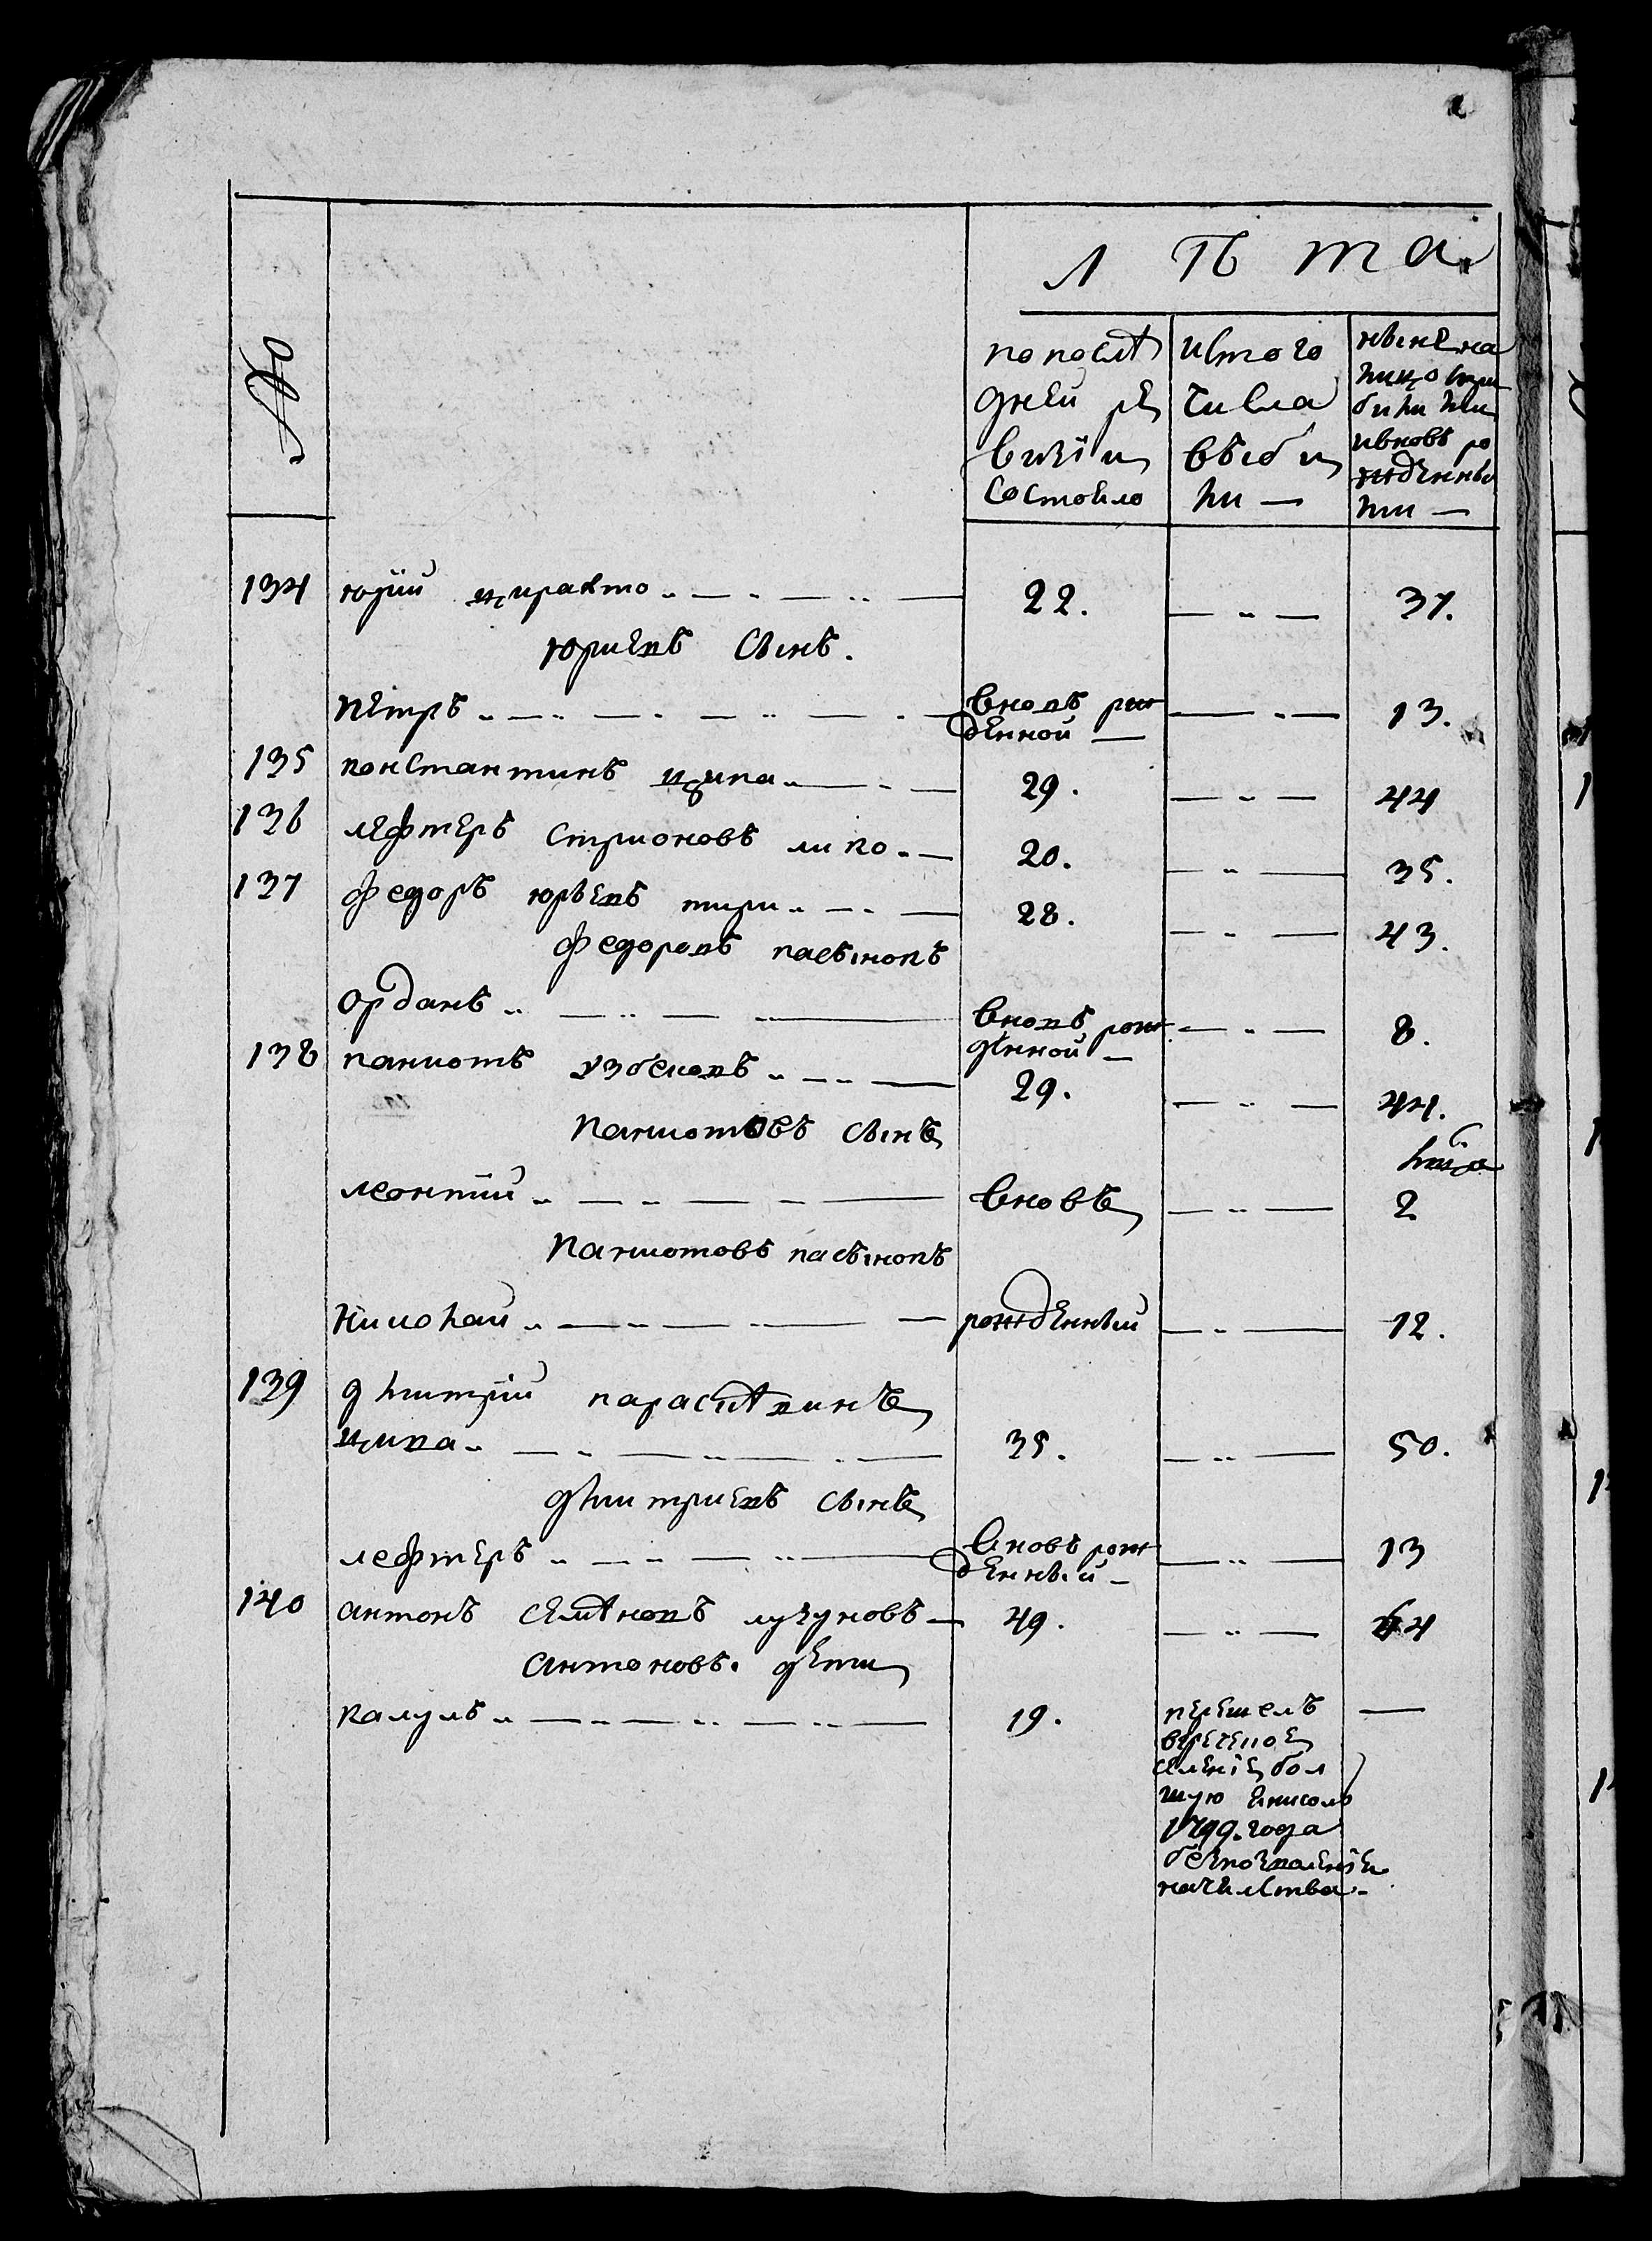 №
Лѣта
по послѣ
дней ре
визіи
состояло
ис того
числа
выбы
ли —
ныне на
лицо с при
былыми
и вновь ро
жденны
ми —
134 юрий циракто 22. 37.
юриевъ сынъ.
петръ вновъ рож
денной — 13.
135 константинъ цыка 29. 44
136 лефтеръ стрионовъ лико 20. 35.
137 федоръ юрьевъ тири 28. 43.
федоровъ пасынокъ
Орданъ вновъ рож
денной — 8.
138 паниотъ узбековъ 29. 44.
паниотовъ сынъ
месяца
леонтий вновъ 2
паниотовъ пасынокъ
николай рожденный 12.
139 дмитрий параскевинъ
цика 35. 50.
дмитриевъ сынъ
лефтеръ вновъ рож
денный — 13
140 антонъ семеновъ лугуновъ — 49. 64
антоновъ. дети
калумъ 19. перешелъ —
в греческое
селение бол
шую енисоль
1799. года
без позволения
начелства. —